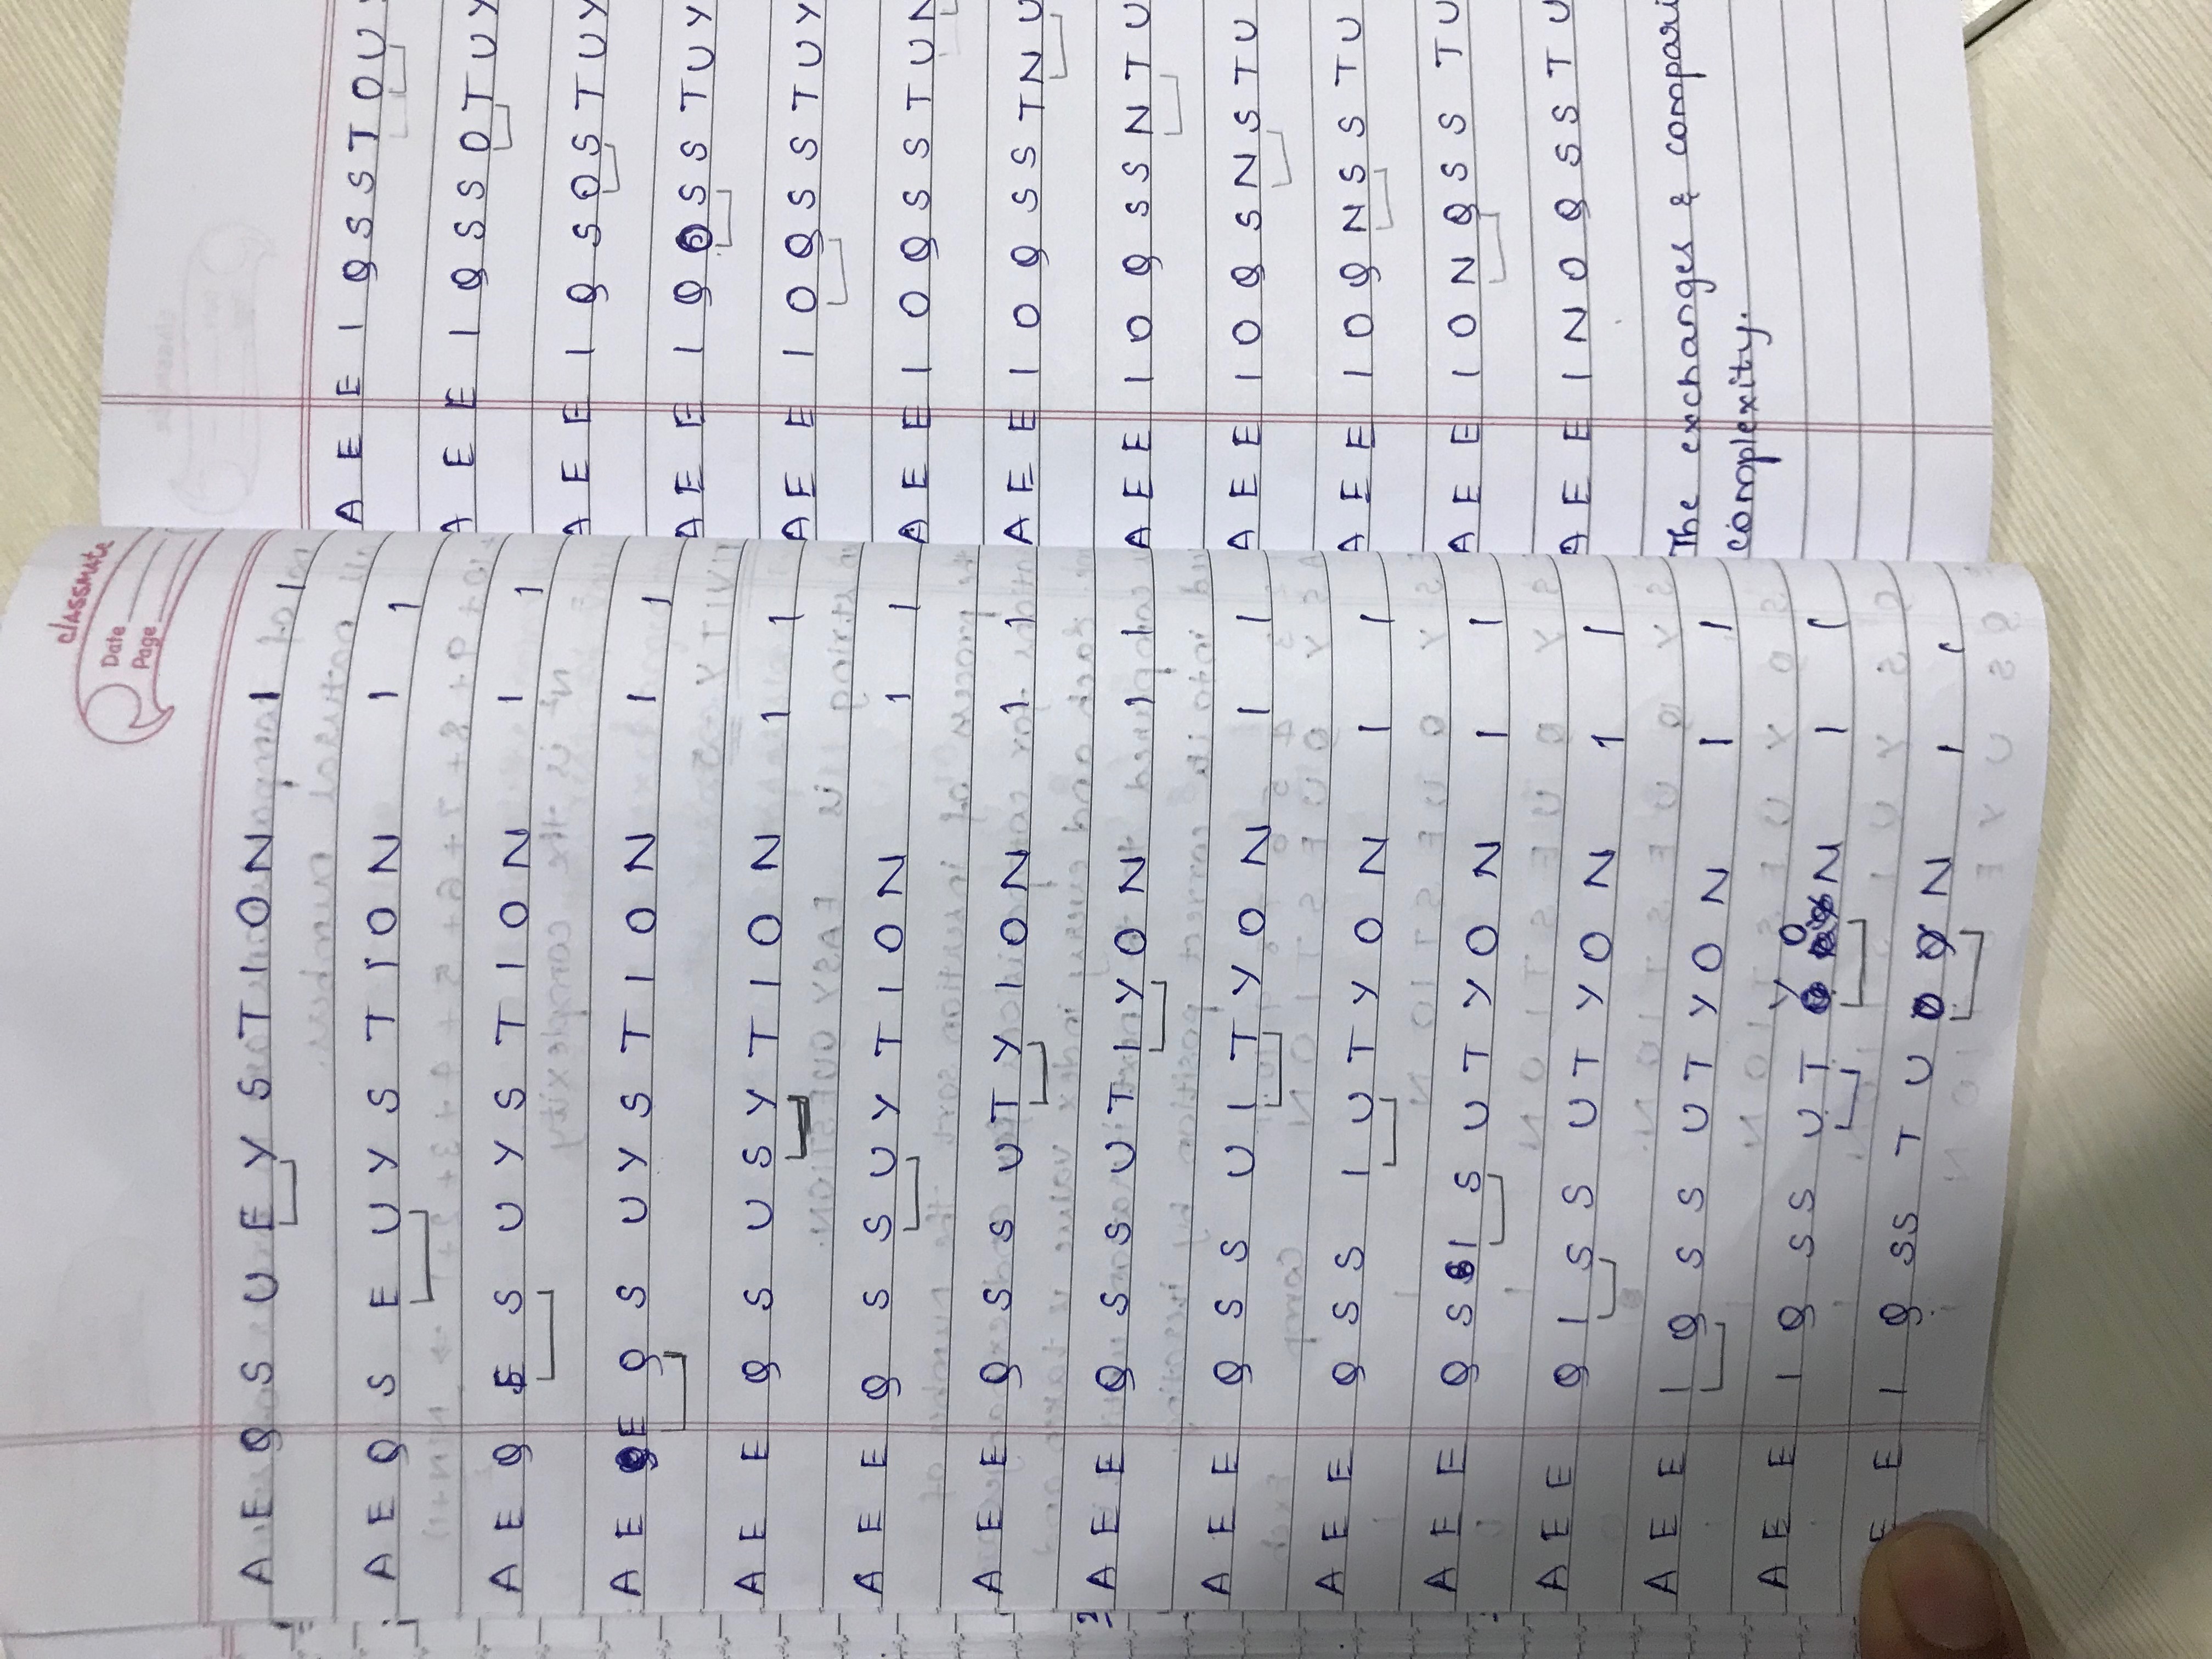 classmate
Date
Page
A E Q S U E Y S T I O N 1 1
A E Q S E U Y S T I O N 1 1
A E Q E S U Y S T I O N 1 1
A E E Q S U Y S T I O N 1 1
A E E Q S U S Y T I O N 1 1
A E E Q S S U Y T I O N 1 1
A E E Q S S U T Y I O N 1 1
A E E Q S S U T I Y O N 1 1
A E E Q S S U I T Y O N 1 1
A E E Q S S I U T Y O N 1 1
A E E Q S I S U T Y O N 1 1
A E E Q I S S U T Y O N 1 1
A E E I Q S S U T Y O N 1 1
A E E I Q S S U T Y O N 1 1
E E I Q S S T U O Y N 1 1
A E E I Q S S T O U
A E E I Q S S O T U Y
A E E I Q S O S T U Y
A E E I Q O S S T U Y
A E E I O Q S S T U Y
A E E I O Q S S T U N
A E E I O Q S S T N U
A E E I O Q S S N T U
A E E I O Q S N S T U
A E E I O Q N S S T U
A E E I O N Q S S T U
A E E I N O Q S S T U
The exchanges & compari
complexity.